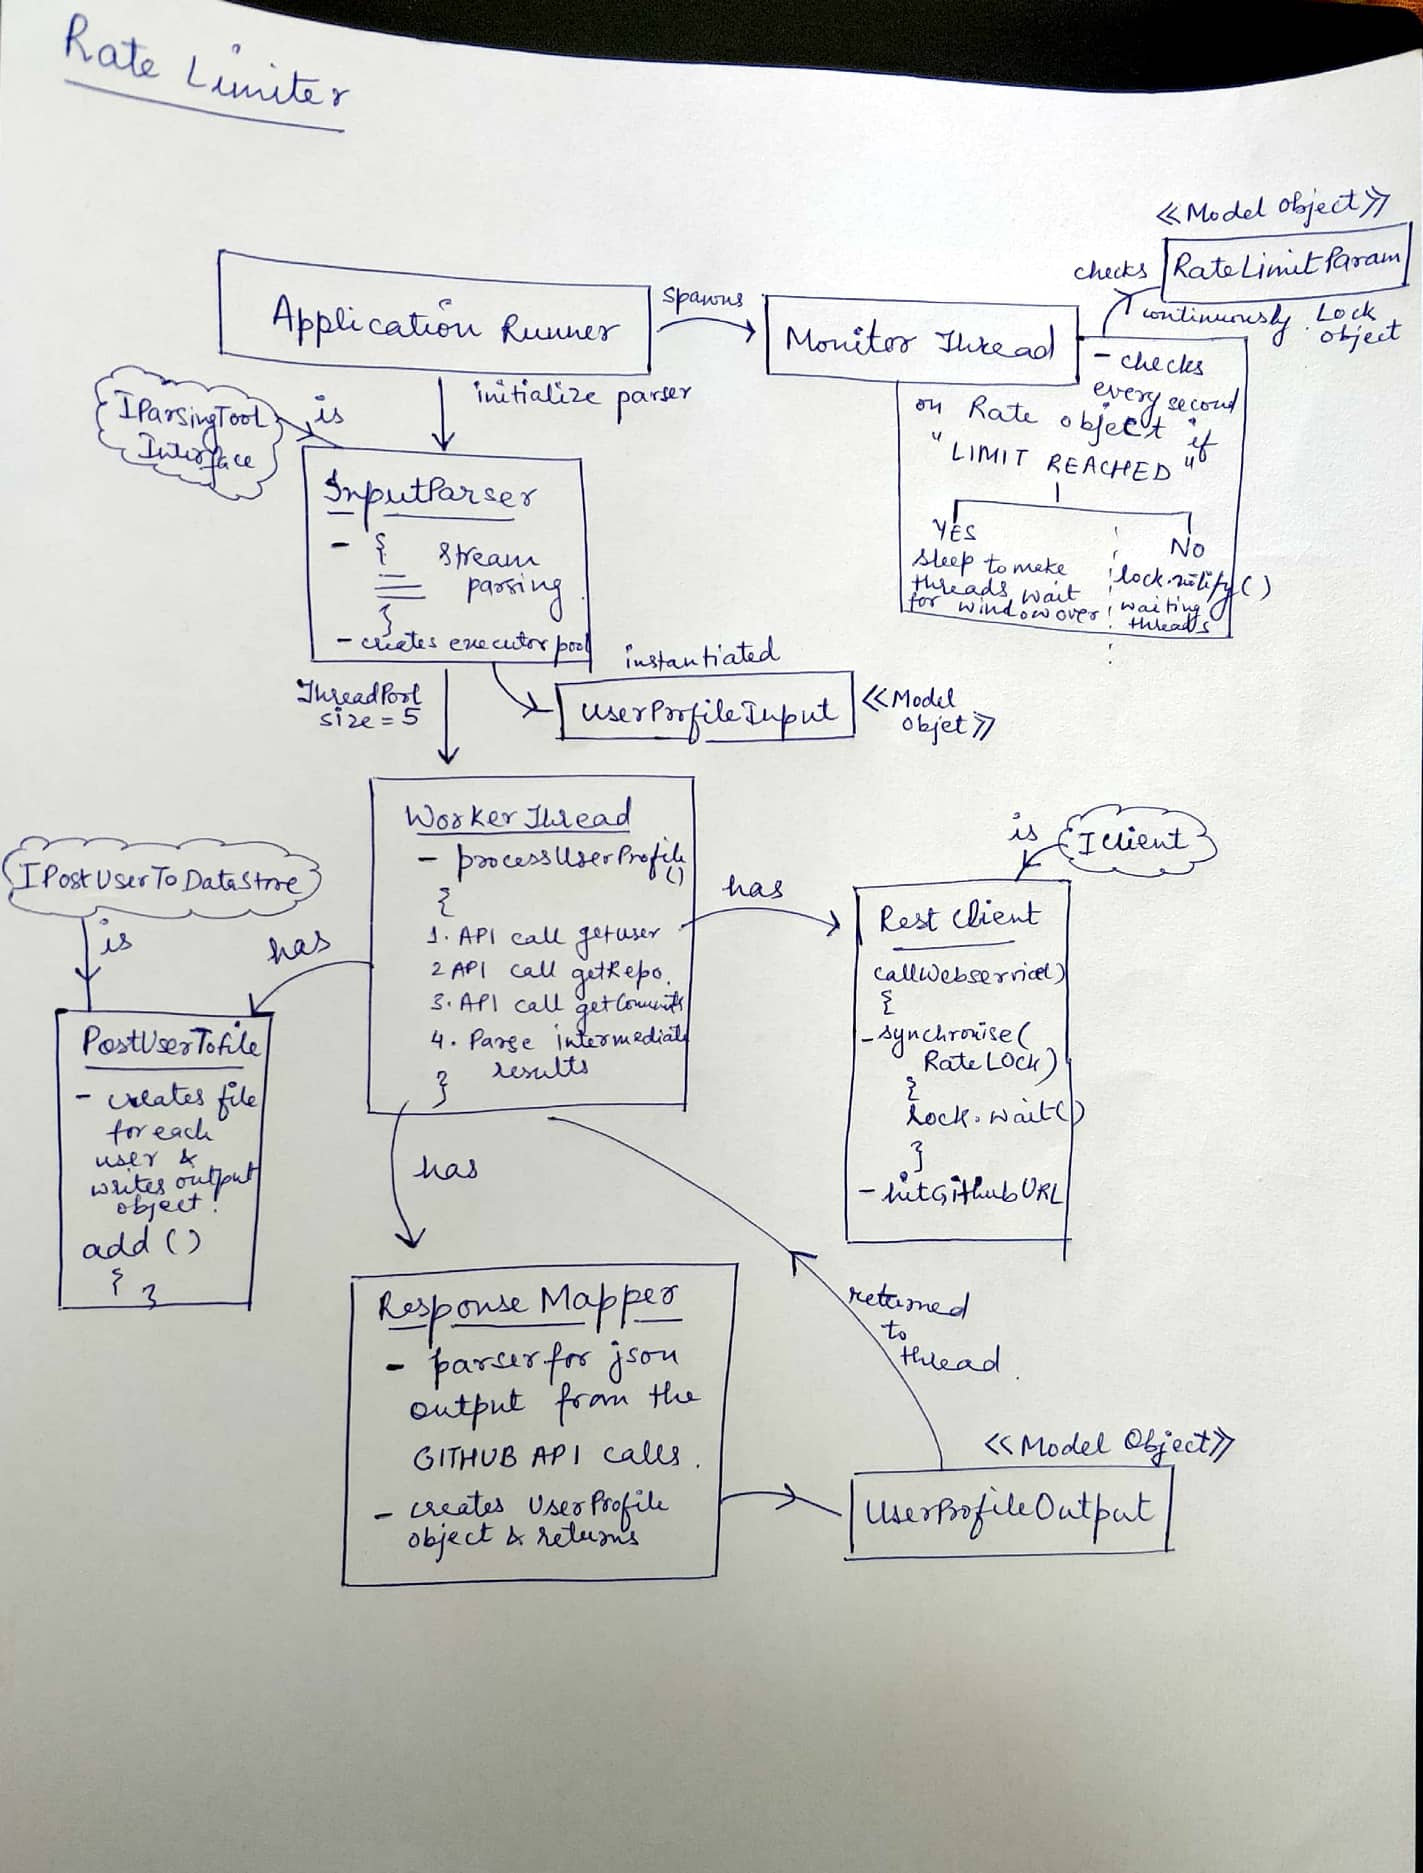 Rate Limiter
<<Model Object>>
RateLimitParam
checks
continuously
Lock
object
Application Runner
spawns
Monitor Thread
- checks
every second
on Rate object if
"LIMIT REACHED"
YES
sleep to make
threads wait
for window over
No
lock.notify()
waiting
threads
initialize parser
IParsingTool
Interface
is
InputParser
- {
stream
parsing
}
- creates executor pool
instantiated
ThreadPool
size = 5
UserProfileInput
<<Model
Objet>>
WorkerThread
- processUserProfile
()
{
1. API call getuser
2 API call getRepo.
3. API call getCommits
4. Parse intermediate
results
}
has
is
IClient
Rest Client
callWebservice()
{
- synchronise(
RateLOCK)
{
lock.wait()
}
- hitGithubURL
IPostUserToDataStore
is
has
PostUserTofile
- creates file
for each
user &
writes output
object.
add ()
{ }
has
Response Mapper
- parser for json
output from the
GITHUB API calls.
- creates UserProfile
object & returns
returned
to
thread.
<<Model Object>>
UserProfileOutput